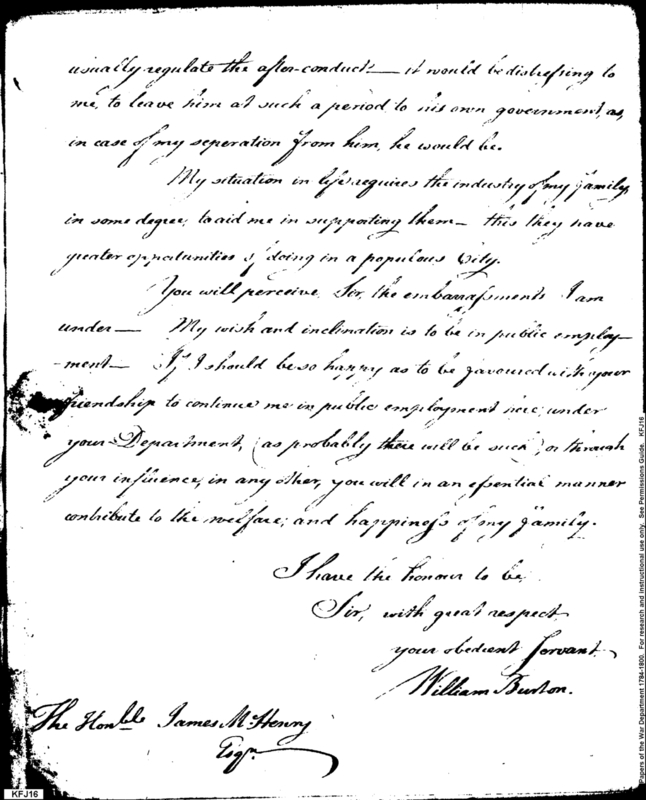 usually regulate the after-conduct — it would be distressing to
me, to leave him at such a period, to his own government, as,
in case of my seperation from him, he would be.
My situation in life requires the industry of my family,
in some degree, to aid me in supporting them — this they have
greater opportunities of doing in a populous City.
You will perceive, Sir, the embarrassments I am
under — My wish and inclination is to be in public employ-
-ment — If I should be so happy as to be favoured with your
friendship to continue me in public employment here, under
your Department, (as probably there will be such) or through
your influence, in any other, you will in an essential manner
contribute to the welfare, and happiness of my family.
I have the honour to be,
Sir, with great respect
your obedient servant
William Burton.
The Honble James McHenry
Esqr.
KFJ16
Papers of the War Department 1784-1800. For research and instructional use only. See Permissions Guide. KFJ16